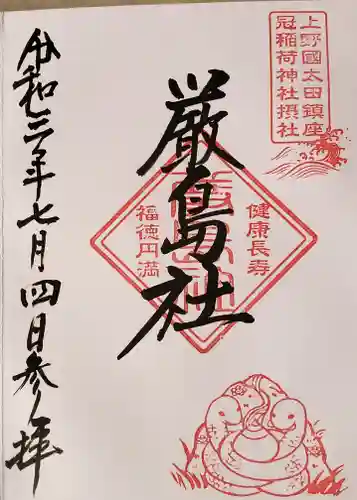 上野國太田鎮座
冠稲荷神社摂社
健康長寿
厳島社
福徳円満
令和三年七月四日参拝